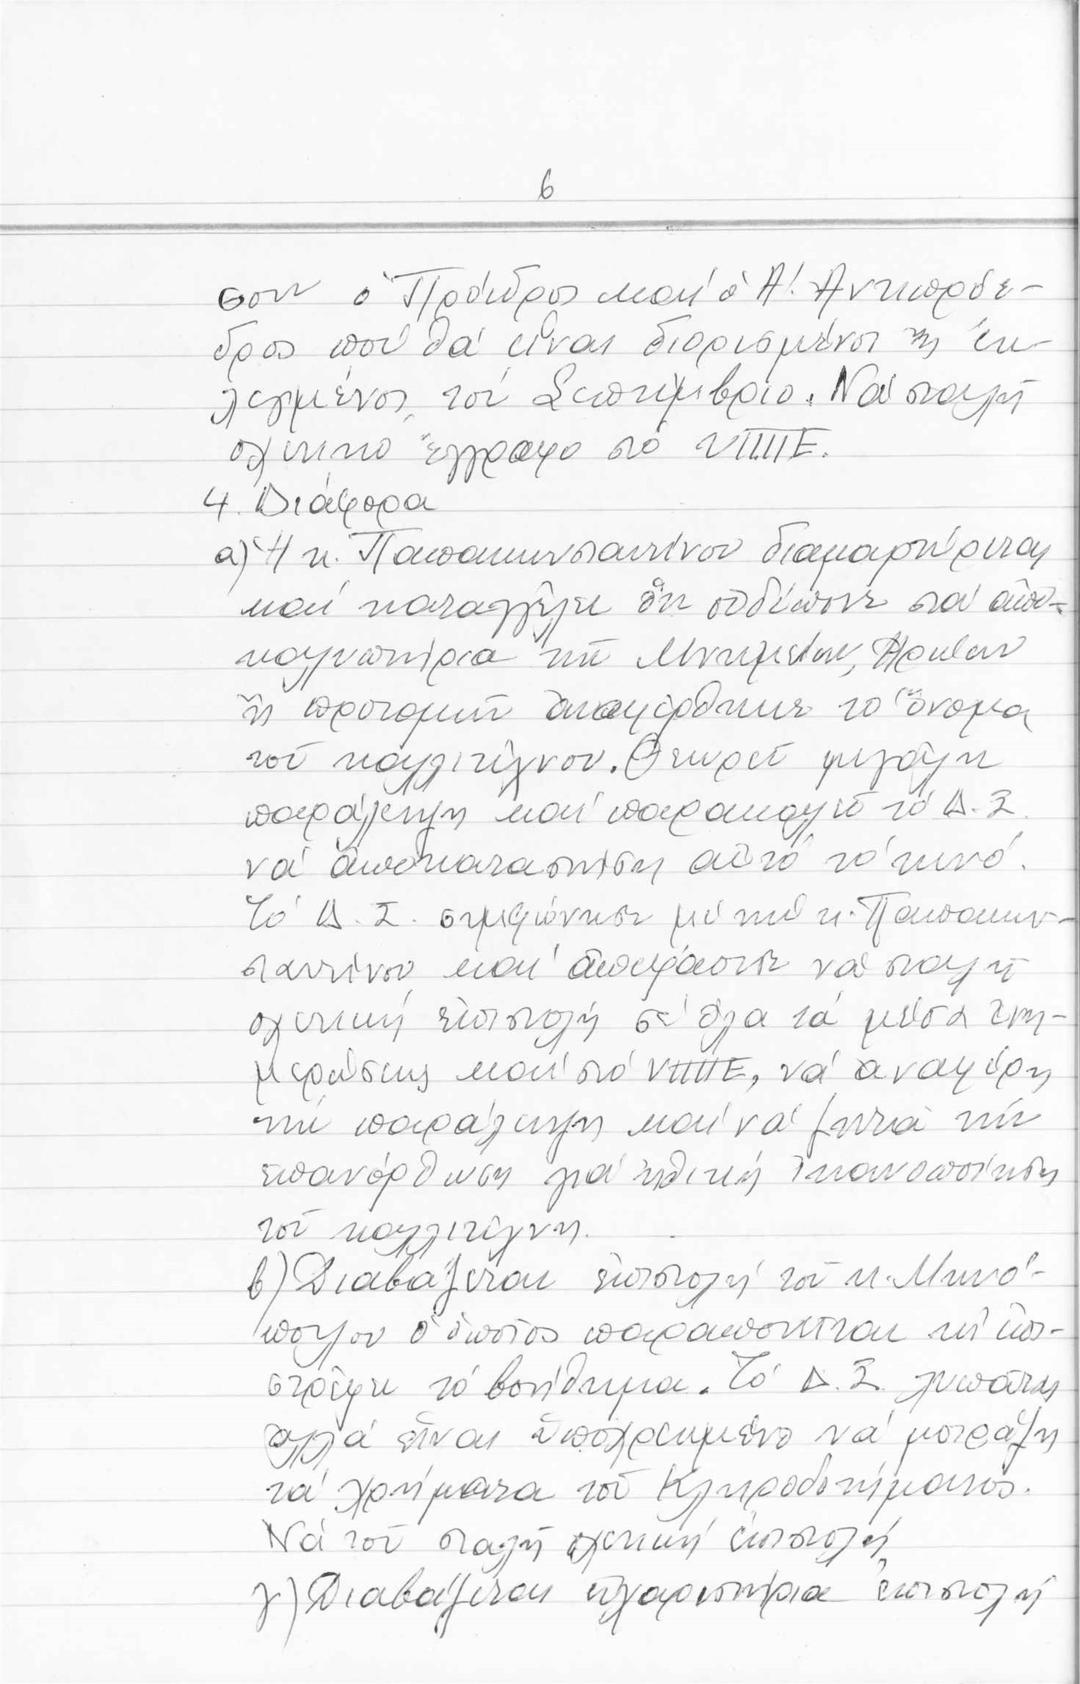 6
σουν ὁ Πρόεδρος καί ὁ Α΄. Ἀντιπρόε-
δρος πού θά εἶναι διορισμένοι ἢ ἐκ-
λεγμένοι τόν Σεπτέμβριο. Νά σταλῆ
σχετικό ἔγγραφο στό ΥΠΠΕ.
4. Διάφορα
α) Ἡ κ. Παπακωνσταντίνου διαμαρτύρεται
καί καταγγέλει ὅτι οὐδέποτε στά ἀπο-
καλυπτήρια τῶν Μνημείων, Ἡρώων
ἢ προτομῶν ἀναφέρθηκε τό ὄνομα
τοῦ καλλιτέχνου. Θεωρεῖ μεγάλη
παράλειψη καί παρακαλεῖ τό Δ.Σ.
νά ἀποκαταστήση αὐτό τό κενό.
Τό Δ.Σ. συμφώνησε μέ τήν κ. Παπακων-
σταντίνου καί ἀπεφάσισε νά σταλῆ
σχετική ἐπιστολή σέ ὅλα τά μέσα ἐνη-
μερώσεως καί στό ΥΠΠΕ, νά ἀναφέρη
τήν παράλειψη καί νά ζητᾶ τήν
ἐπανόρθωση γιά ἠθική ἱκανοποίηση
τοῦ καλλιτέχνη.
β) Διαβάζεται ἐπιστολή τοῦ κ. Μηνό-
πουλου ὁ ὁποῖος παραπονιέται καί ἐπι-
στρέφει τό βοήθημα. Τό Δ.Σ. λυπᾶται
ἀλλά εἶναι ὑποχρεωμένο νά μοιράζη
τά χρήματα τοῦ Κληροδοτήματος.
Νά τοῦ σταλῆ σχετική ἐπιστολή
γ) Διαβάζεται εὐχαριστήρια ἐπιστολή